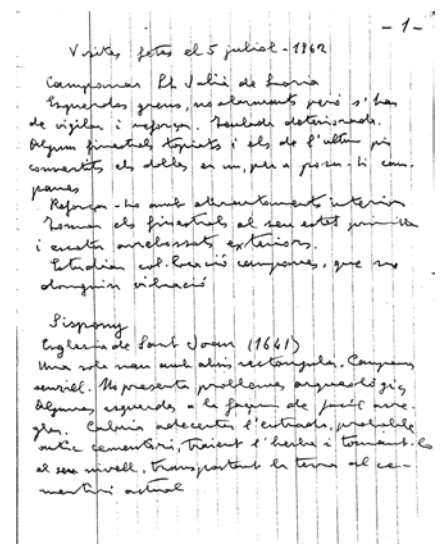 - 1 -
Visites fetes el 5 juliol - 1962
Campanar St Julià de Loria
Esquerdes greus, no alarmants però s'han
de vigilar i reforçar. Teulada deteriorada.
Alguns finestrals tapiats i els de l'ultim pis
convertits els dobles en un, per a posar-hi cam-
panes
Reforçar-ho amb atirantaments interiors
Tornar els finestrals al seu estat primitiu
i arrebossats exteriors.
Estudiar col·locació campanes, que no
donguin vibració
Sispony
Esglesia de Sant Joan (1641)
Una sola nau amb absis rectangular. Campanar
senzill. No presenta problemes arqueològics
Algunes esquerdes a la façana de fàcil arre-
glar. Caldria adecentar l'entrada, probable
antic cementiri, traient l'herba i tornant-la
al seu nivell, transportant la terra al ce-
mentiri actual